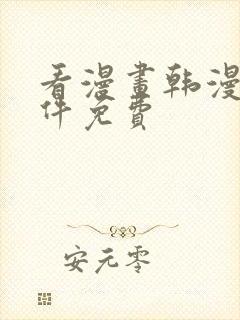 看漫畫韩漫
件免費
安元零